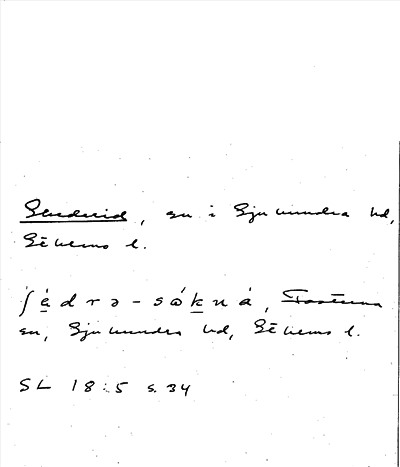 Skederid, sn i Sjuhundra hd,
Sthlms l.
ʃédrə-sókná,
sn, Sjuhundra hd, Sthlms l.
SL 18:5 s. 34